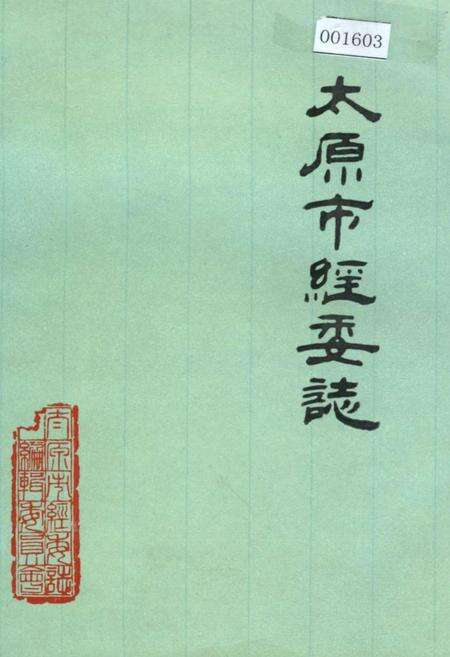 001603
太原市經委誌
太原市經委誌
編輯委員會